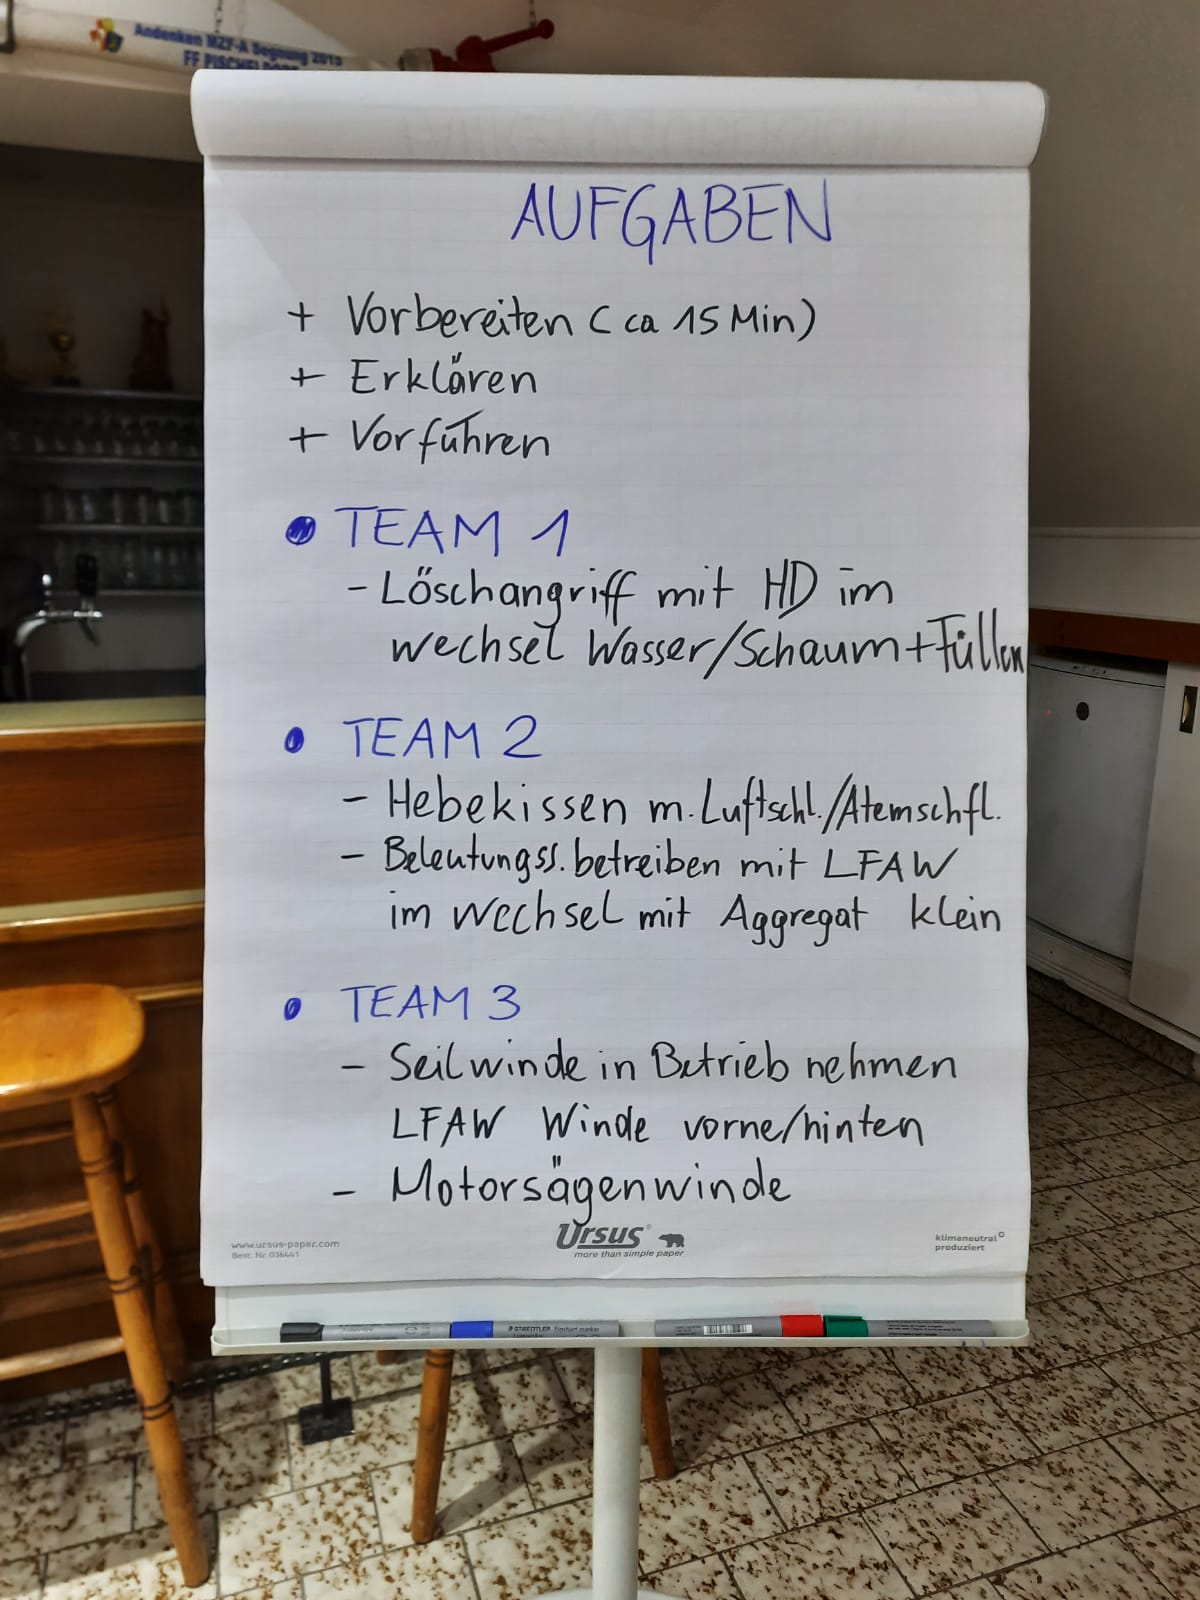 Andenken MZF-A Segnung 2015
FF PISCHELDORF
AUFGABEN
+ Vorbereiten (ca 15 Min)
+ Erklären
+ Vorführen
• TEAM 1
- Löschangriff mit HD im
wechsel Wasser/Schaum+Füllen
• TEAM 2
- Hebekissen m. Luftschl./Atemschfl.
- Beleutungss. betreiben mit LFAW
im wechsel mit Aggregat klein
• TEAM 3
- Seilwinde in Betrieb nehmen
LFAW Winde vorne/hinten
- Motorsägenwinde
www.ursus-paper.com
Best. Nr. 036441
Ursus®
more than simple paper
klimaneutral
produziert
STAEDTLER flipchart marker